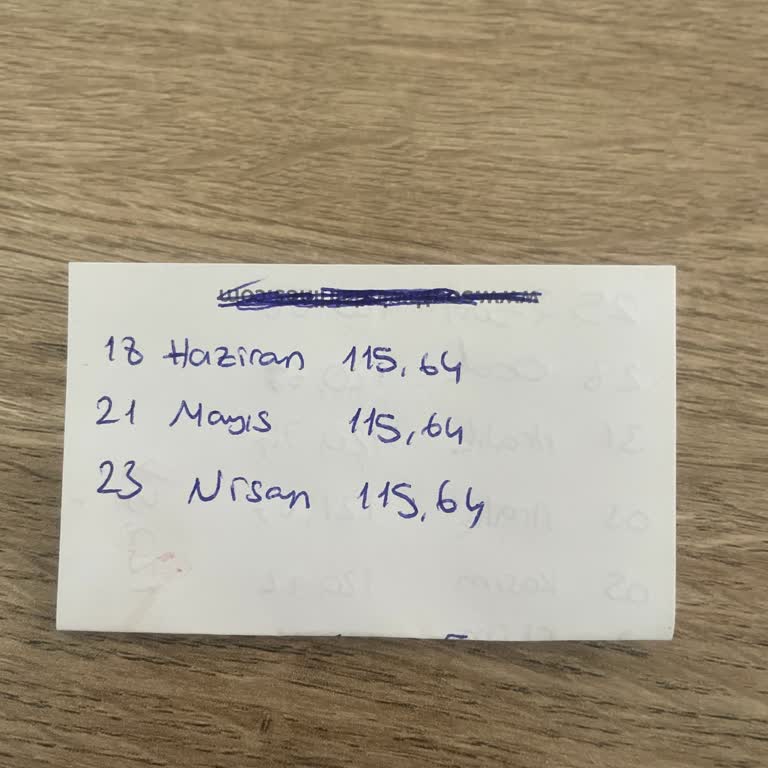 18 Haziran 115,64
21 Mayıs 115,64
23 Nisan 115,64